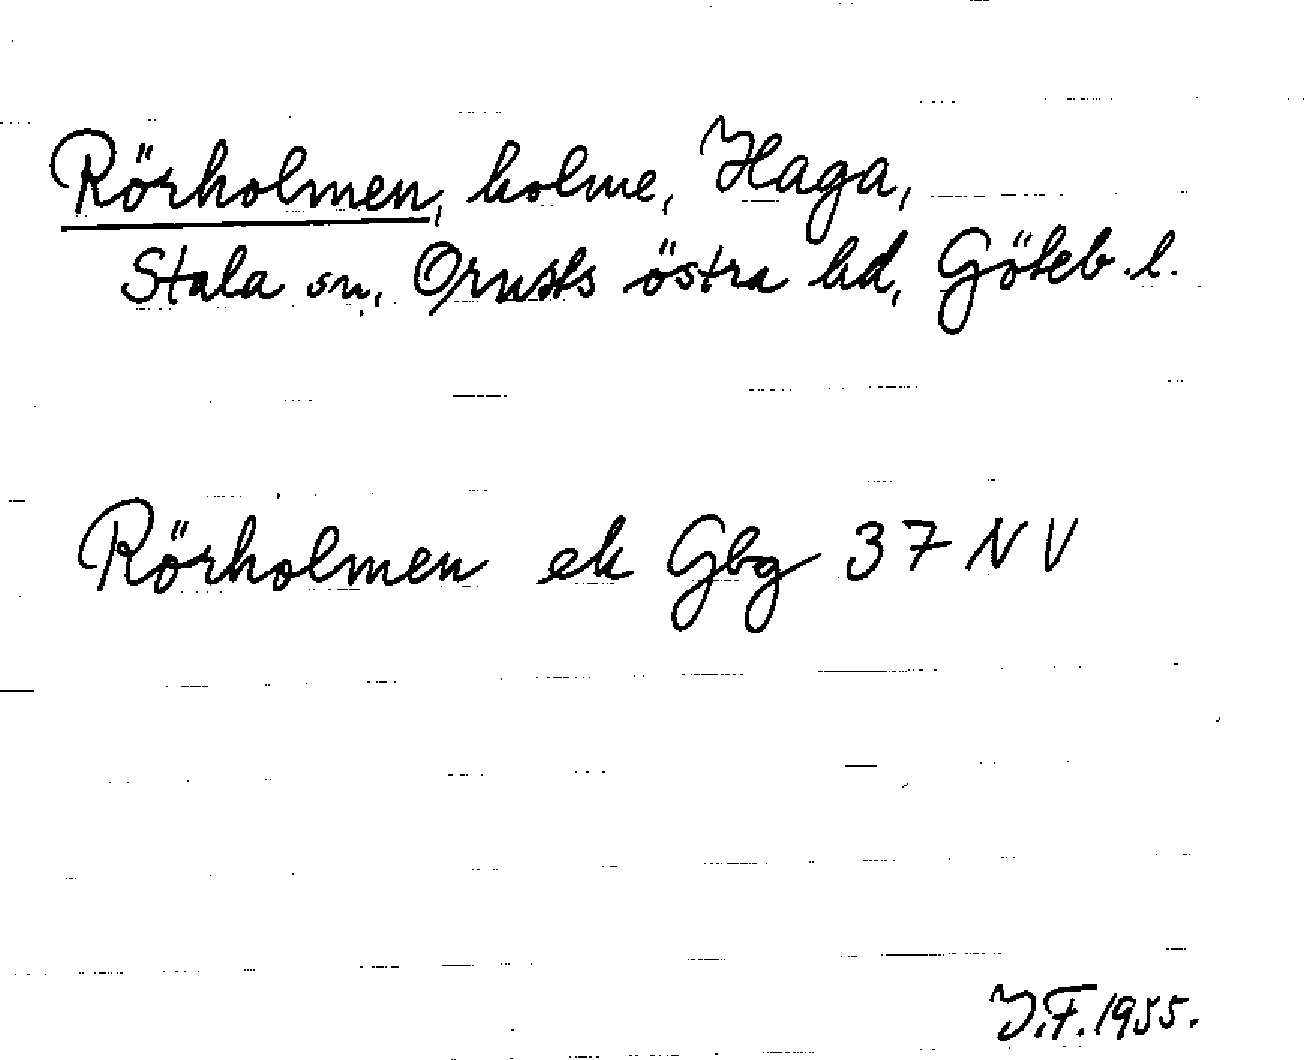 Rörholmen, holme, Haga,
Stala sn, Orusts östra hd, Göteb.l.
Rörholmen ek Gbg 37 NV
I.F. 1955.